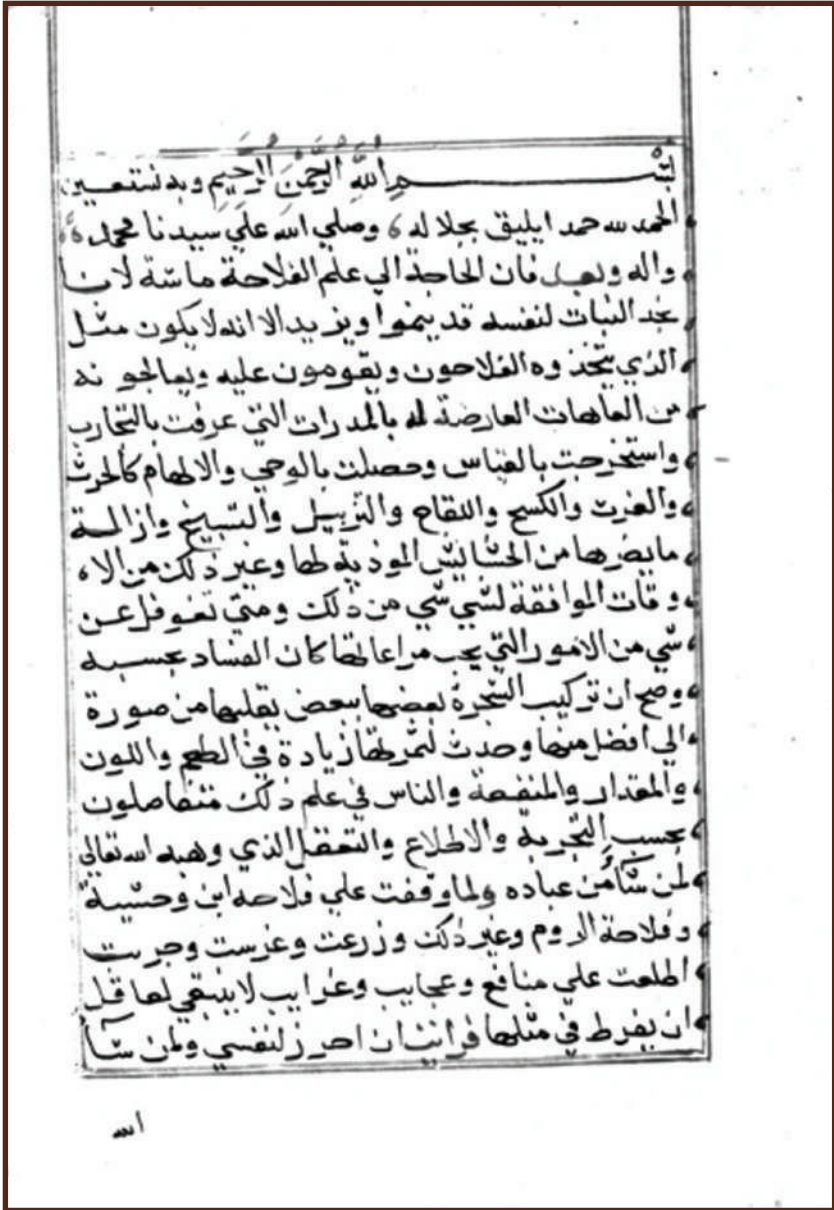 بســــم الله الرحمن الرحيم وبه نستعين
الحمد لله حمدا يليق بجلاله وصلي الله علي سيدنا محمد
واله وبعد فان الحاجة الي علم الفلاحة ماسة لاننا
نجد النبات لنفسه قد ينموا ويزيد الا انه لا يكون مثل
الذي يتخذوه الفلاحون ويقومون عليه ويعالجونه
من العاهات العارضة له بالمدرات التي عرفت بالتجارب
واستخرجت بالقياس وحصلت بالوحي والالهام كالحرث
والغرث والكسح واللقاح والتزبيل والتسبيخ وازالة
ما يضرها من الحشايش الموذية لها وغير ذلك من الا
وقات الموافقة لشي شي من ذلك ومتي تغوفل عن
شي من الامور التي يجب مراعاتها كان الفساد بحسبه
وصح ان تركيب الشجرة بعضها ببعض يقلبها من صورة
الي افضل منها وحدث لثمرتها زيادة في الطعم واللون
والمقدار والمنفعة والناس في علم ذلك متفاضلون
بحسب التجربة والاطلاع والتعقل الذي وهبه الله تعالي
لمن شآ من عباده ولما وقفت علي فلاحه ابن وحشية
وفلاحة الروم وغير ذلك وزرعت وغرست وجربت
اطلعت علي منافع وعجايب وغرايب لا ينبغي لعاقل
ان يفرط في مثلها فرايت ان احرز لنفسي ولمن شآ
الله